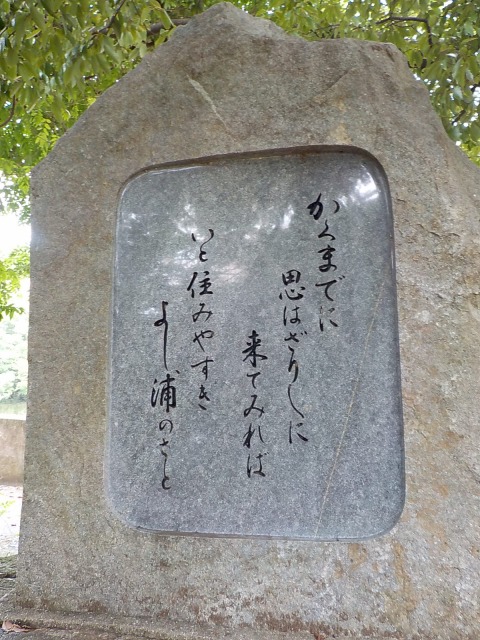 かくまでに
思はざりしに
来てみれば
いと住みやすき
よし浦のさと